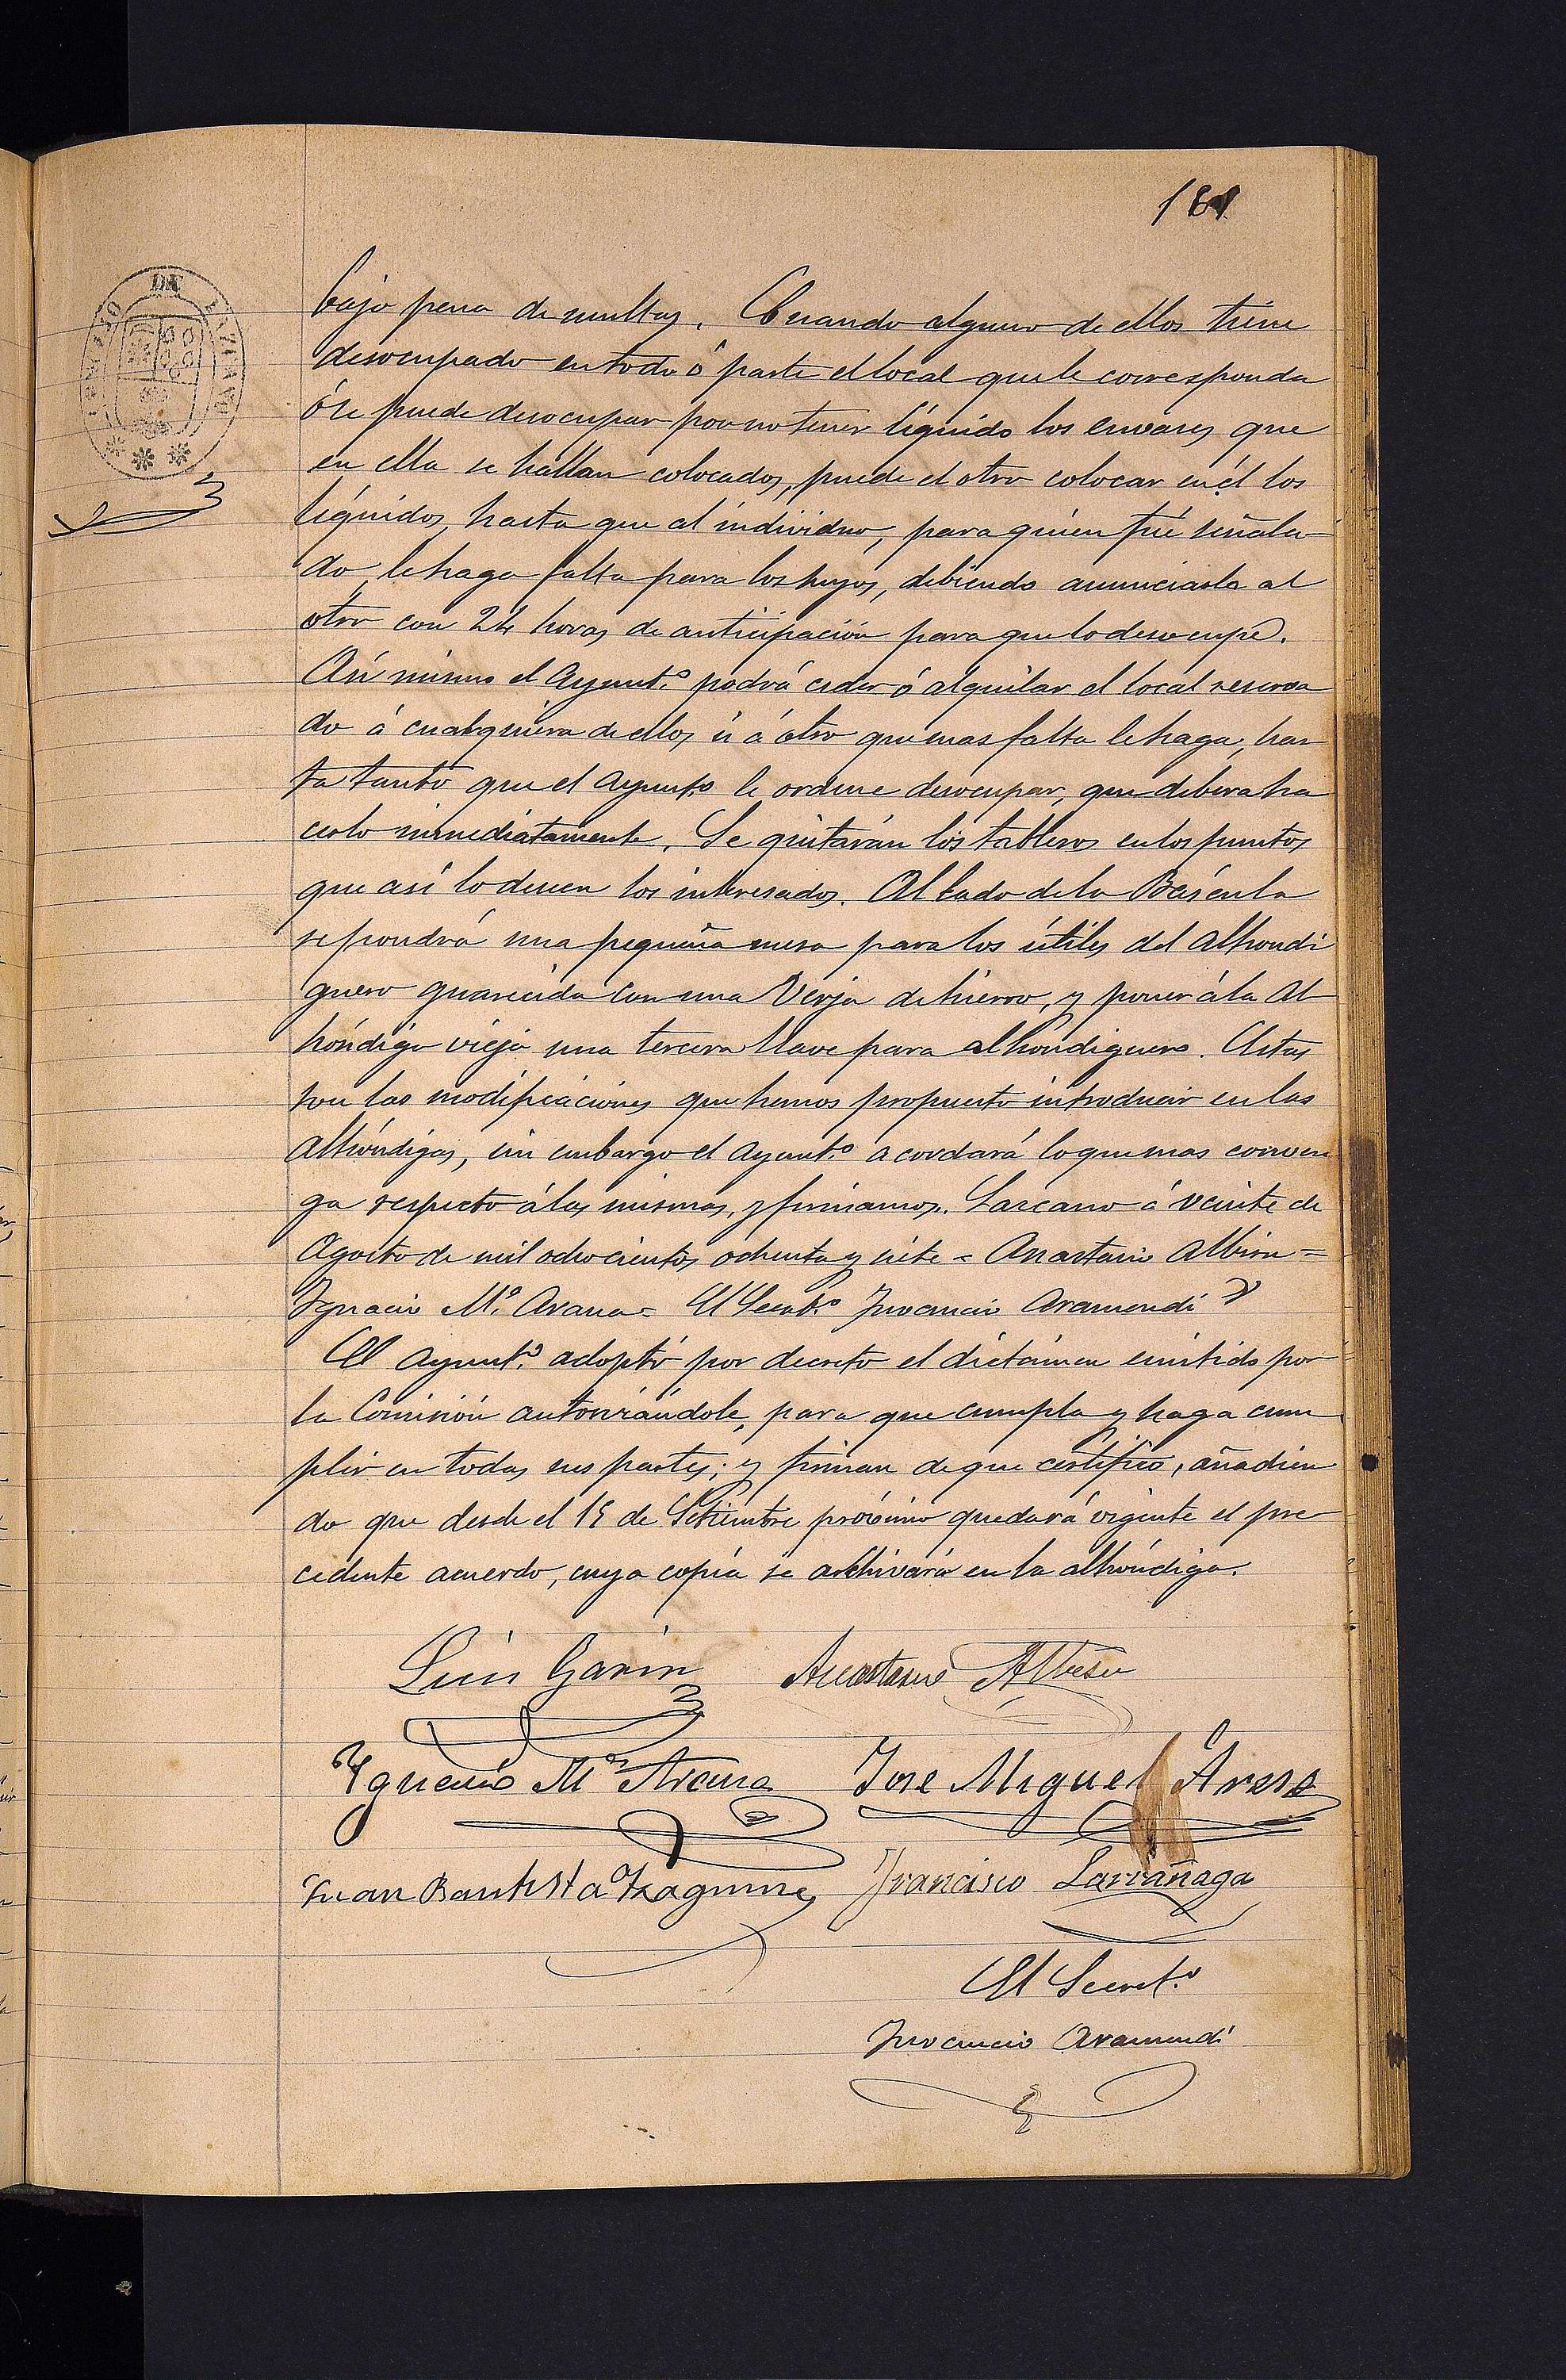 181
bajo pena de multas. Cuando alguno de ellos tiene
desocupado en todo ó parte el local que le corresponda
ó se puede desocupar por no tener líquido los envases que
en ella se hallan colocados, puede el otro colocar en él los
líquidos, hasta que al individuo, para quien fué señala-
do le haga falta para los suyos, debiendo anunciarlo al
otro con 24 horas de anticipación para que lo desocupe.
Así mismo el Ayunt.º podrá ceder ó alquilar el local reserva
do á cualquiera de ellos ú á otro que mas falta le haga, has
ta tanto que el Ayunt.º le ordene desocupar, que deberá ha
cerlo inmediatamente. Se quitarán los tableros en los puntos
que así lo deseen los interesados. Al lado de la Báscula
se pondrá una pequeña mesa para los útiles del Alhondi
guero guarecida con una Verja de hierro, y poner á la Al-
hóndiga vieja una tercera llave para alhondiguero. Estas
son las modificaciones que hemos propuesto introducir en las
Alhóndigas, sin embargo el Ayunt.º acordará lo que mas conven
ga respecto á las mismas, y firmamos. Lazcano á veinte de
Agosto de mil ochocientos ochenta y siete = Anastasio Albisu =
Ignacio M.ª Arana = El Secret.º Juvencio Aramendi
El Ayunt.º adoptó por decreto el dictámen emitido por
la Comisión autorizándole, para que cumpla y haga cum
plir en todas sus partes; y firman de que certifico, añadien
do que desde el 15 de Setiembre próximo quedará vigente el pre-
cedente acuerdo, cuya copia se archivará en la alhóndiga.
Luis Garin Anastasio Albisu
Ygnacio M.ª Arana Jose Miguel
Juan Bautista Francisco Larrañaga
El Secret.º
Juvencio Aramendi